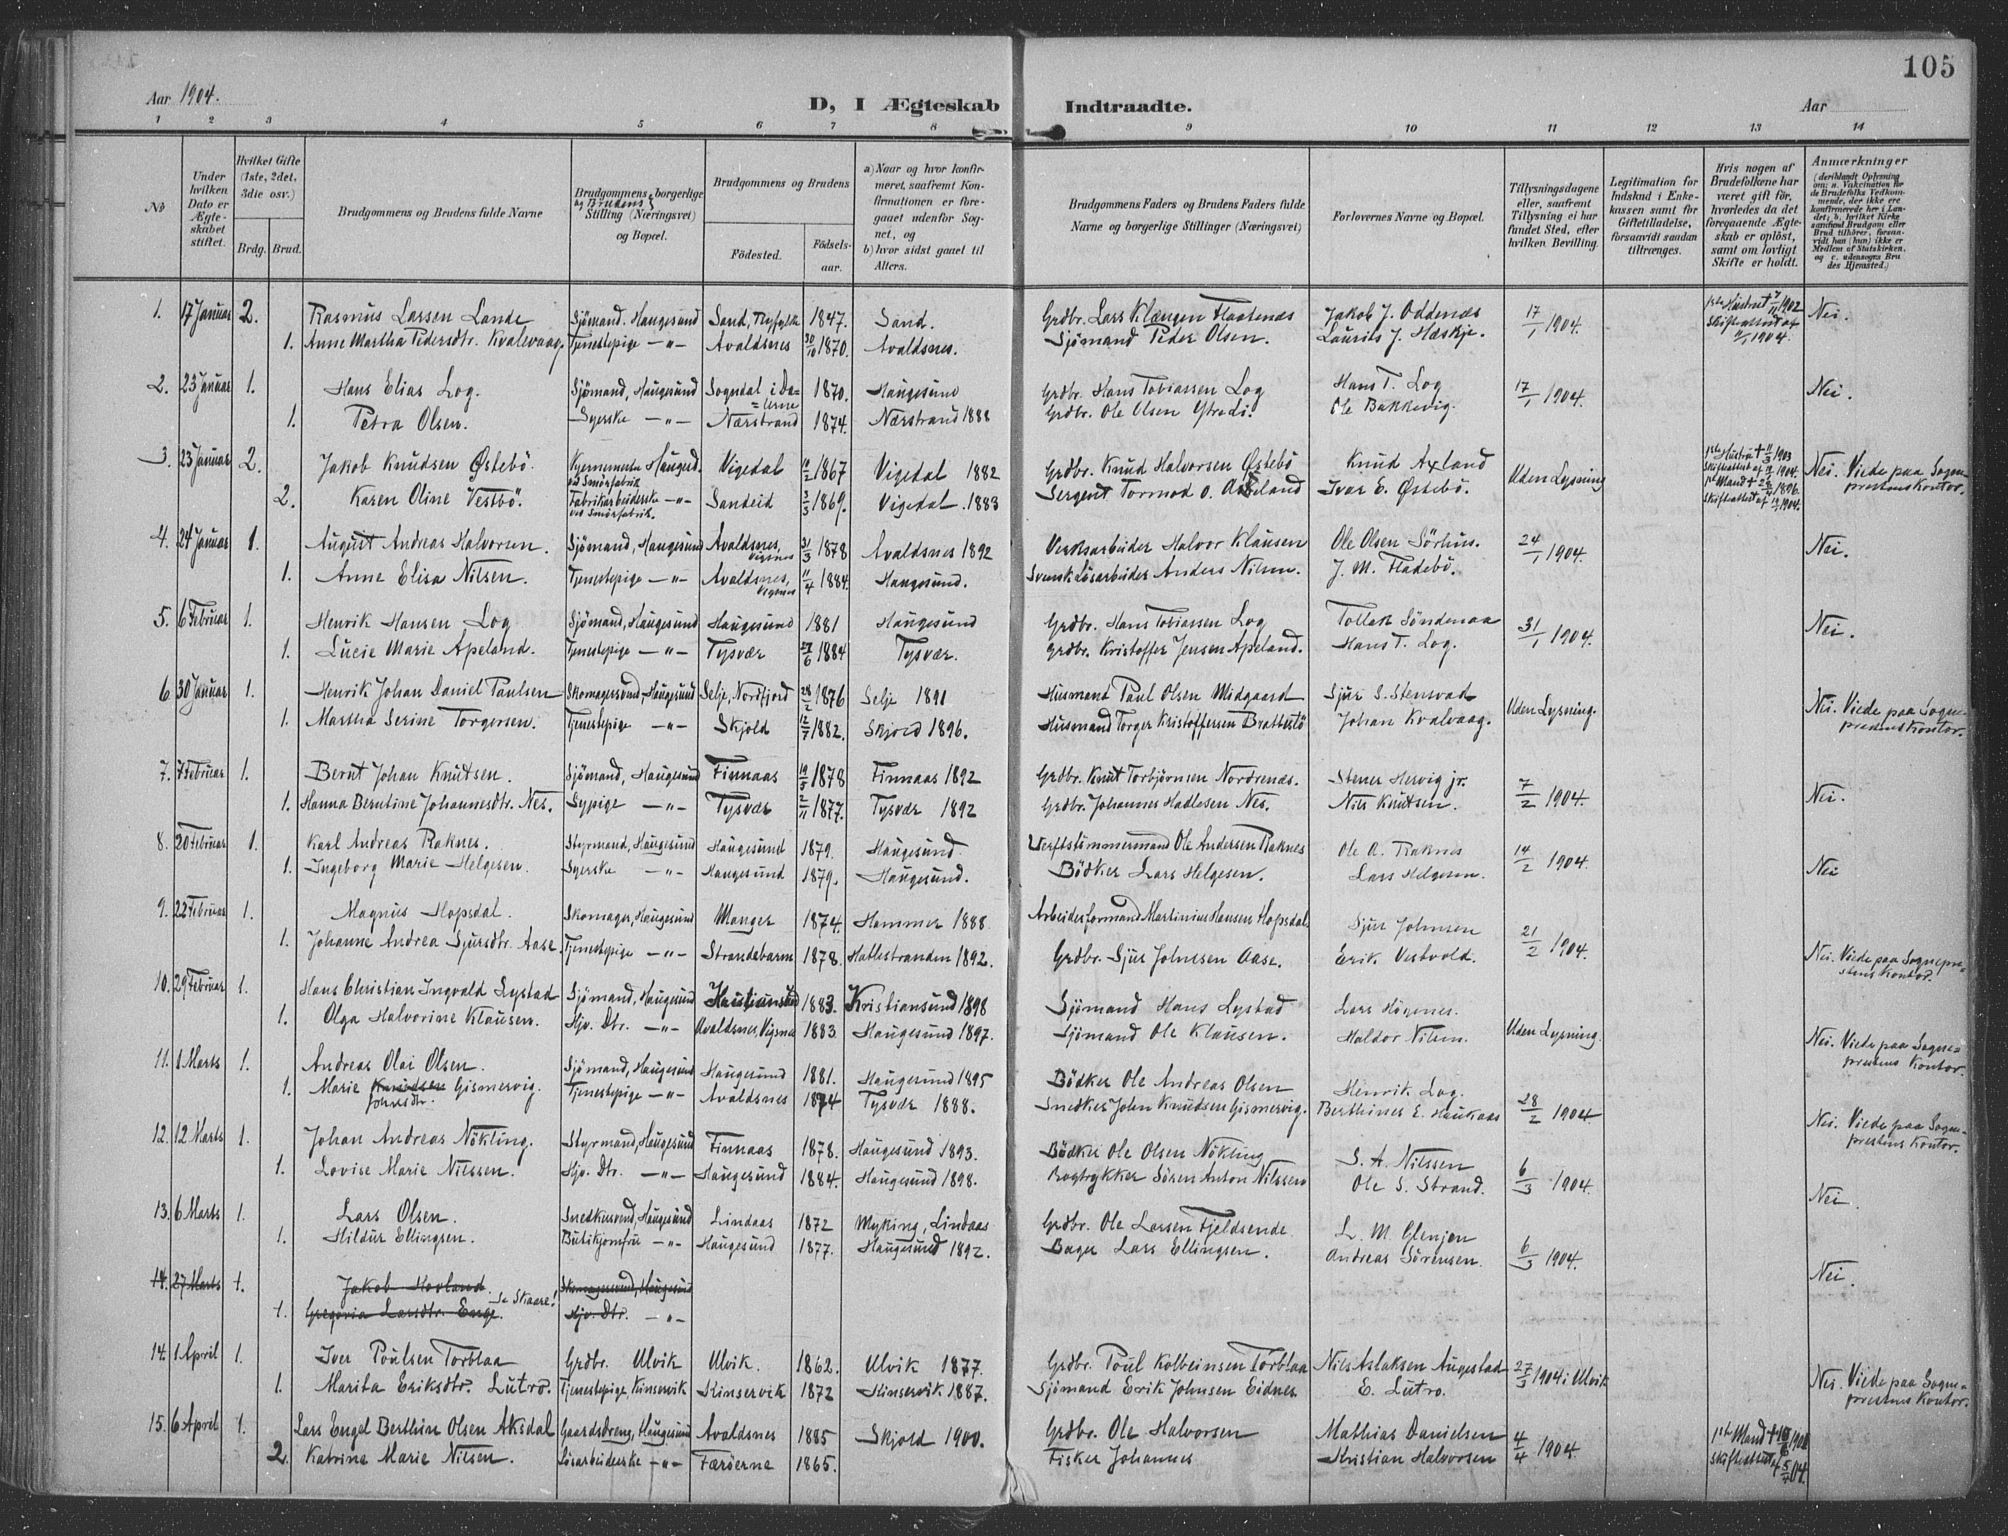 105
Aar 1904. D, I Ægteskab Indtraadte. Aar
1 2 3 4 5 6 7 8 9 10 11 12 13 14
No
Under hvilken Dato er Ægteskabet stiftet.
Hvilket Gifte (1ste, 2det, 3die osv.)
Brdg. Brud.
Brudgommens og Brudens fulde Navne
Brudgommens og Brudens borgerlige Stilling (Næringsvei) og Bopæl.
Brudgommens og Brudens
Födested. Födselsaar.
a) Naar og hvor konfirmeret, saafremt Konfirmationen er foregaaet udenfor Sognet, og
b) hvor sidst gaaet til Alters.
Brudgommens Faders og Brudens Faders fulde Navne og borgerlige Stillinger (Næringsvei)
Forlovernes Navne og Bopæl.
Tillysningsdagene eller, saafremt Tillysning ei har fundet Sted, efter hvilken Bevilling.
Legitimation for Indskud i Enkekassen samt for Giftetilladelse, forsaavidt saadan tiltrænges.
Hvis nogen af Brudefolkene har været gift för, hvorledes da det foregaaende Ægteskab er oplöst, samt om lovligt Skifte er holdt.
Anmærkninger
(deriblandt Oplysning om: a. Vakcination for de Brudefolks Vedkommende, der ikke ere konfirmerede her i Landet; b. hvilket Kirkesamfund Brudgom eller Brud tilhörer, forsaavidt han (hun) ikke er Medlem af Statskirken, og c. udensogns Brudes Hjemsted.)
1. 17 Januar 2. Rasmus Larsen Lande Sjömand. Haugesund Sand, Ryfylke 1847. Sand. Grdbr. Lars Klængen Flaatenæs Jakob J. Oddenæs 17/1 1904. 1ste Hustru † 7/11 1902 Skifteattest af 11/1 1904. Nei.
1. Anne Martha Pedersdtr. Kvalevaag. Tjenestepige —"— Avaldsnes 30/10 1870. Avaldsnes. Sjömand Peder Olsen. Laurits J. Hæskje.
2. 23 Januar 1. Hans Elias Log. Sjömand, Haugesund Sogndal i Dalerne 1870. Haugesund Grdbr. Hans Tobiassen Log Hans T. Log 17/1 1904. Nei.
1. Petra Olsen. Syerske —"— Nærstrand 1874. Nærstrand 1888 Grdbr. Ole Olsen Ytredi. Ole Bakkevig.
3. 23 Januar 2. Jakob Knudsen Östebö. Kjernemester ved Smörfabrik Haugesd. Vigedal 1867 Vigedal 1882 Grdbr. Knud Halvorsen Östebö Knud Axland Uden Lysning 1ste Hustru † 1903 Skifteattest af 1904. Nei. Viede paa Sogneprestens Kontor.
2. Karen Oline Vestbö. Fabrikarbeiderske ved Smörfabrik. —"— Sandeid 3/3 1869. Vigedal. 1883 Sergent Tormod O. Ivar E. Östebö. 1ste Mand † 1896. Skifteattest af 1904.
4. 24 Januar 1. August Andreas Halvorsen. Sjömand, Haugesund Avaldsnes, Vigsnes 31/3 1878 Avaldsnes 1892 Verksarbeider Halvor Klausen Ole Olsen Sörhus. 24/1 1904. Nei.
1. Anne Elisa Nilsen. Tjenestepige —"— Avaldsnes, Vigsnes 11/4 1884. Haugesund. Svensk Løsarbeider Anders Nilsen. J. M. Fladebö.
5. 6 Februar 1. Henrik Hansen Log Sjömand, Haugesund Haugesund 1881 Haugesund Grdbr. Hans Tobiassen Log Tollak Söndenaa 31/1 1904. Nei.
1. Lucie Marie Apeland. Tjenestepige —"— Tysvær 27/6 1884 Tysvær. Grdbr. Kristoffer Jensen Apeland. Hans T. Log.
6 30 Januar 1. Henrik Johan Daniel Paulsen Skomagersvend, Haugesund Selje, Nordfjord 28/2 1876 Selje 1891 Husmand Paul Olsen Midgaard Sjur S. Stensvad Uden Lysning. Nei. Viede paa Sogneprestens Kontor.
1. Martha Serine Torgersen. Tjenestepige —"— Skjold 12/7 1882. Skjold 1896. Husmand Torger Kristoffersen Brattestö Johan Kvalvaag.
7. 7 Februar 1. Bernt Johan Knutsen. Sjömand, Haugesund Finnaas 19/5 1878 Finnaas 1892 Grdbr. Knut Torbjörnsen Nordrenæs. Stener Hervig jr. 7/2 1904. Nei.
1. Hanna Berntine Johannesdtr. Nes. Sypige —"— Tysvær 2/11 1877. Tysvær 1892 Grdbr. Johannes Hadlesen Nes. Nils Knutsen.
8. 20 Februar 1. Karl Andreas Raknes. Styrmand, Haugesund Haugesund 1879. Haugesund. Verftstömmermand Ole Andersen Raknes Ole A. Raknes 14/2 1904. Nei
1. Ingeborg Marie Helgesen. Syerske —"— Haugesund 1879. Haugesund. Bödker Lars Helgesen. Lars Helgesen.
9. 22 Februar 1. Magnus Hopsdal. Skomager, Haugesund Manger 1874. Hammer 1888. Arbeidsformand Martinius Hansen Hopsdal. Sjur Johnsen 21/2 1904. Nei. Viede paa Sogneprestens Kontor.
1. Johanne Andrea Sjursdtr. Aase. Tjenestepige —"— Strandebarm 1878. Hatlestranden 1892. Grdbr. Sjur Johnsen Aase. Erik Vestvold.
10. 29 Februar 1. Hans Christian Ingvald Lystad Sjömand, Haugesund Kristiansund 1883. Kristiansund 1898 Sjömand Hans Lystad Lars Högenes. Uden Lysning. Nei. Viede paa Sogneprestens Kontor.
1. Olga Halvorine Klausen. Hjv. Dtr. —"— Avaldsnes, Vigsnes 1883. Haugesund 1897. Sjömand Ole Klausen. Haldor Nilsen.
11. 1 Marts 1. Andreas Olai Olsen. Sjömand, Haugesund Haugesund 1881. Haugesund 1895 Bödker Ole Andreas Olsen Henrik Log. 28/2 1904 Nei. Viede paa Sogneprestens Kontor.
1. Marie Knudsen Johnsdtr. Gismervig. Tjenestepige —"— Avaldsnes 1874 Tysvær 1888. Snedker John Knudsen Gismervig. Berthines E. Haukaas
12. 12 Marts 1. Johan Andreas Nökling. Styrmand, Haugesund Finnaas 1878. Haugesund 1893. Bödker Ole Olsen Nökling S. A. Nilssen 6/3 1904. Nei.
1. Lovise Marie Nilssen. Hjv. Dtr. —"— Haugesund 1884. Haugesund 1898. Bogtrykker Sören Anton Nilssen Ole S. Strand.
13. 6 Marts 1. Lars Olsen. Snedkersvend, Haugesund Lindaas 1872 Myking, Lindaas Grdbr. Ole Larsen Fjeldsende L. M. Glenjen 6/3 1904. Nei.
1. Hildur Ellingsen. Butikjomfru —"— Haugesund 1877. Haugesund 1892. Bager Lars Ellingsen. Andreas Sörensen.
14. 27 Marts 1. Jakob Hovland Skomagersvend, Haugesund
1. Gregoria Larsdtr. Enge. Se Skaare! Hjv. Dtr. —"—
14. 1 April 1. Iver Poulsen Torblaa Grdbr. Ulvik Ulvik. 1862. Ulvik 1877. Grdbr. Poul Kolbeinsen Torblaa Nils Aslaksen Augestad 27/3 1904 i Ulvik Nei. Viede paa Sogneprestens Kontor.
1. Marita Eriksdtr. Lutro. Tjenestepige Kinservik Kinservik 1872 Kinservik 1887. Sjömand Erik Johnsen Eidnes E. Lutro.
15. 6 April 1. Lars Engel Berthin Olsen Aksdal Gaardsdreng, Haugesund Avaldsnes 1885 Skjold 1900. Grdbr. Ole Halvorsen Mathias Danielsen 4/4 1904. 1ste Mand † Skifteattest 5/4 04.
2. Katrine Marie Nilsen. Lösarbeiderske —"— Færöerne 1865. Fisker Johannes Kristian Halvorsen